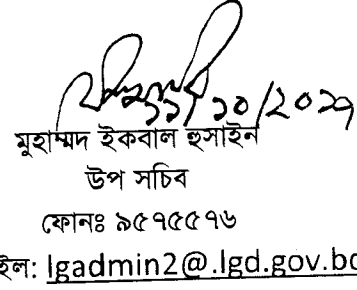 মুহাম্মদ ইকবাল হুসাইন
উপ সচিব
ফোনঃ ৯৫৭৫৫৭৬
ইল: lgadmin2@.lgd.gov.bd